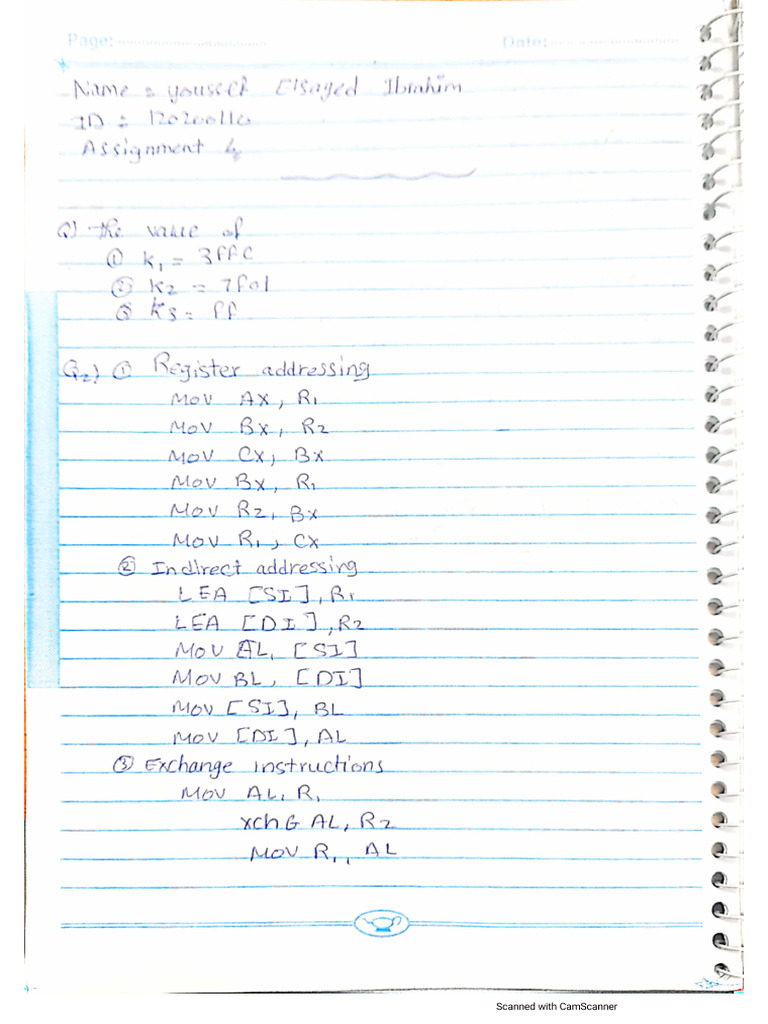 Page: Date:
Name : youssef Elsayed Ibrahim
ID :
Assignment 4
Q) the value of
① K1 = 3FFC
② K2 = 7F01
③ K3 = FF
Q2) ① Register addressing
MOV AX, R1
MOV BX, R2
MOV CX, BX
MOV BX, R1
MOV R2, BX
MOV R1, CX
② Indirect addressing
LEA [SI], R1
LEA [DI], R2
MOV AL, [SI]
MOV BL, [DI]
MOV [SI], BL
MOV [DI], AL
③ Exchange instructions
MOV AL, R1
XchG AL, R2
MOV R1, AL
Scanned with CamScanner